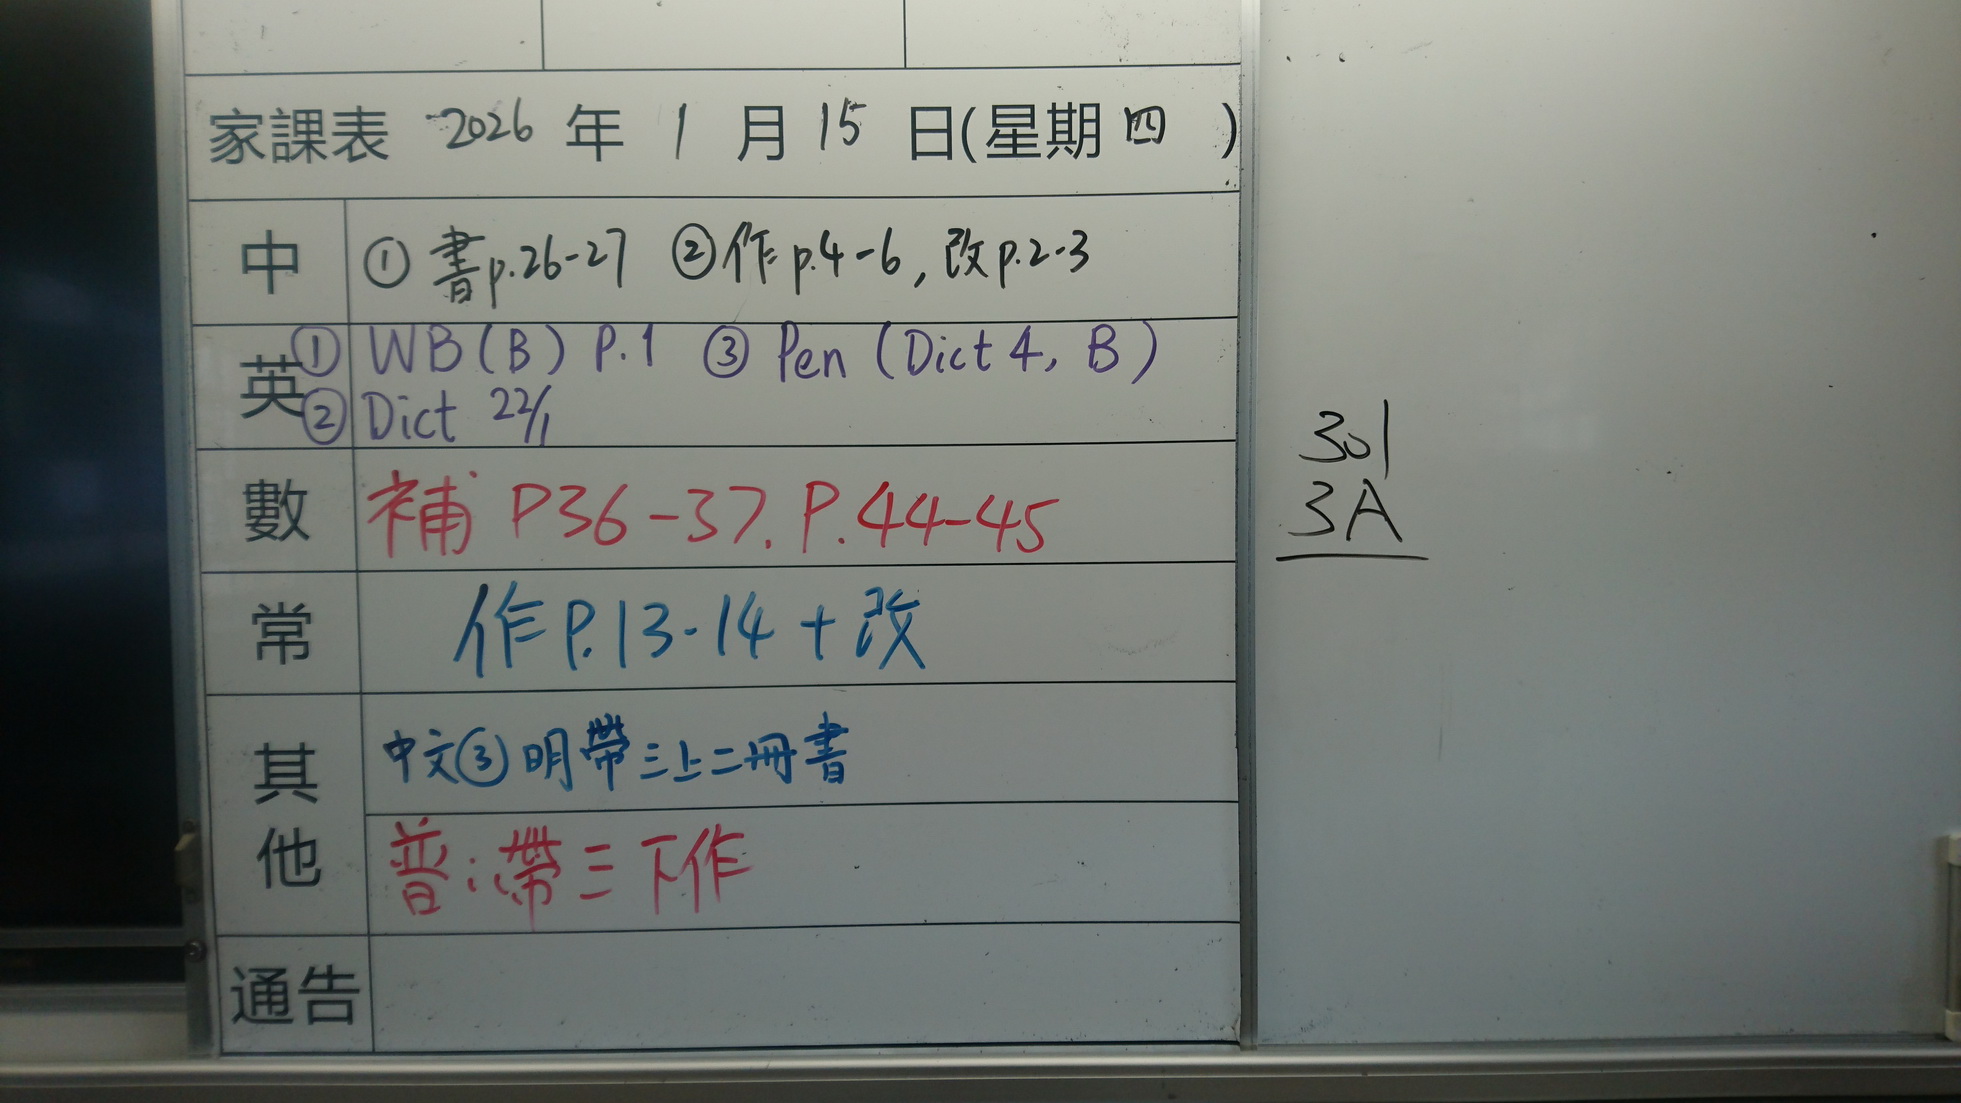 家課表 2026 年 1 月 15 日(星期 四 )
中 ①書p.26-27 ②作p.4-6, 改p.2-3
英 ① WB(B) P.1 ③ Pen (Dict 4, B)
② Dict 22/1
數 補 P36-37. P.44-45
常 作P.13-14 + 改
其他 中文③明帶三上二冊書
普:帶三下作
通告
301
3A